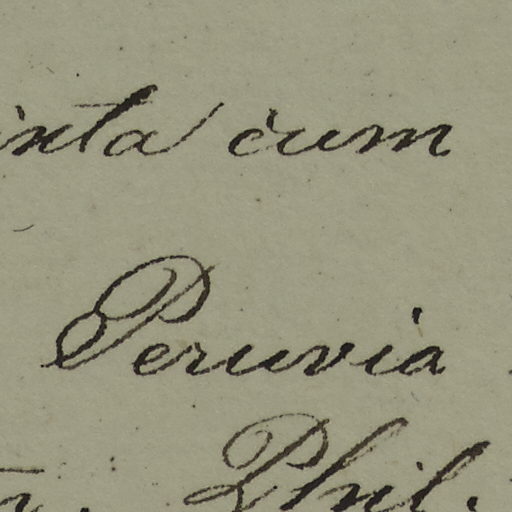 ixta cum
Peruvia
Phil.